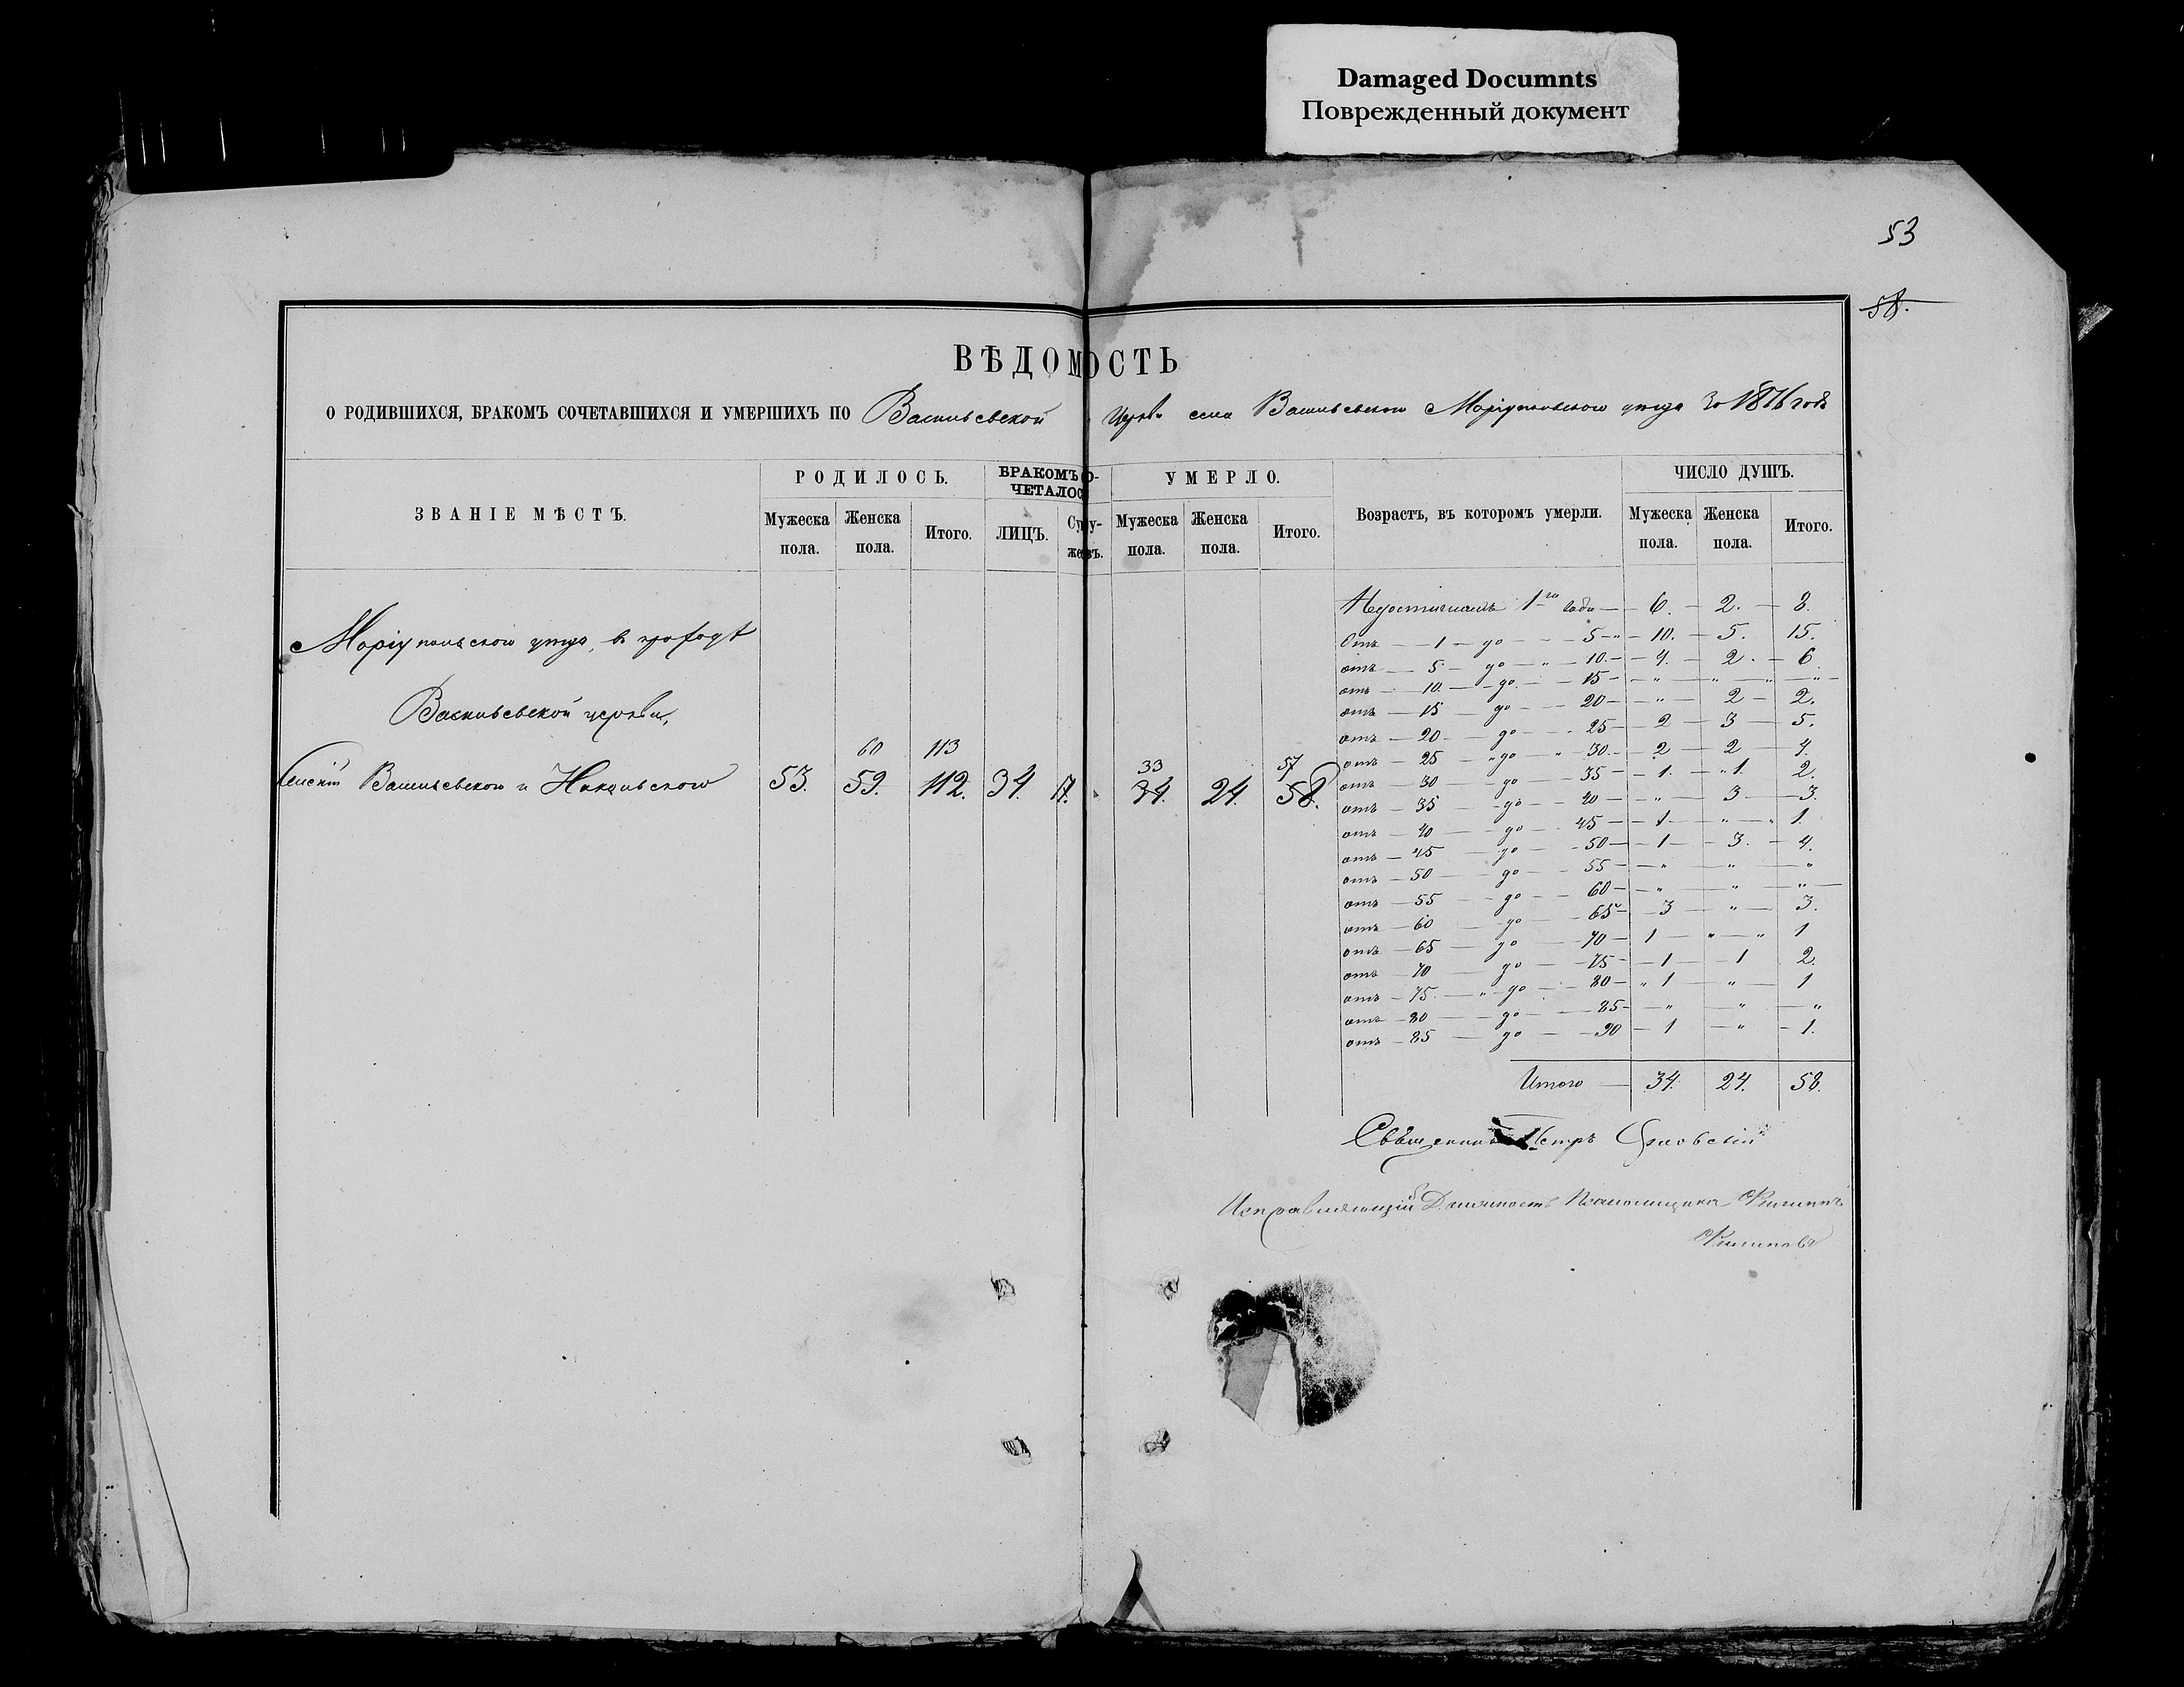 Damaged Documnts
Поврежденный документ
53
58.
ВѢДОМОСТЬ
О РОДИВШИХСЯ, БРАКОМЪ СОЧЕТАВШИХСЯ И УМЕРШИХЪ ПО Васильевской Церкви села Васильевского Маріупольского уѣзда За 1876 годъ
ЗВАНІЕ МѢСТЪ.
РОДИЛОСЬ.
Мужеска пола.
Женска пола.
Итого.
БРАКОМЪ СО-
ЧЕТАЛОСЬ
ЛИЦЪ.
Супру-
жествъ.
УМЕРЛО.
Мужеска пола.
Женска пола.
Итого.
Возрастъ, въ которомъ умерли.
ЧИСЛО ДУШЪ.
Мужеска пола.
Женска пола.
Итого.
Маріупольского уѣзда, въ приходѣ
Васильевской церкви,
60 113 33 57
Васильевского и 53. 59. 112. 34. 17. 34. 24. 58.
Недостигшихъ 1го года — 6. — 2. — 8.
Отъ — 1 — до — 5 — 10. — 5. 15.
отъ — 5 — до — " — 10. — 4. — 2. — 6.
отъ — 10. — до — 15 — " — " — "
отъ — 15 — до — 20 — " — 2 — 2.
отъ — 20 — до — 25 — 2 — 3 — 5.
отъ — 25 — " до — " — 30. — 2 — 2 — 4.
отъ — 30 — до — 35 — 1. — " 1. 2.
отъ — 35 — до — 40 — " — 3 — 3.
отъ — 40 — до — 45 — 1 — " — " 1.
отъ — 45 — до — 50 — 1 — 3. — 4.
отъ — 50 — до — 55 — " — " — "
отъ — 55 — до — 60 — " — " — "
отъ — 60 — до — 65 — 3 — " — 3.
отъ — 65 — до — 70 — 1 — " — " 1
отъ — 70 — до — 75 — 1 — 1 2.
отъ — 75. — " — до — 80 — " 1 — " — 1
отъ — 80 — до — 85 — " — " — "
отъ — 85 — до — 90 — 1 — " — 1.
Итого — 34. 24. 58.
Священникъ Петръ
Исправляющій Должность Псаломщика Филиппъ
Филиповъ